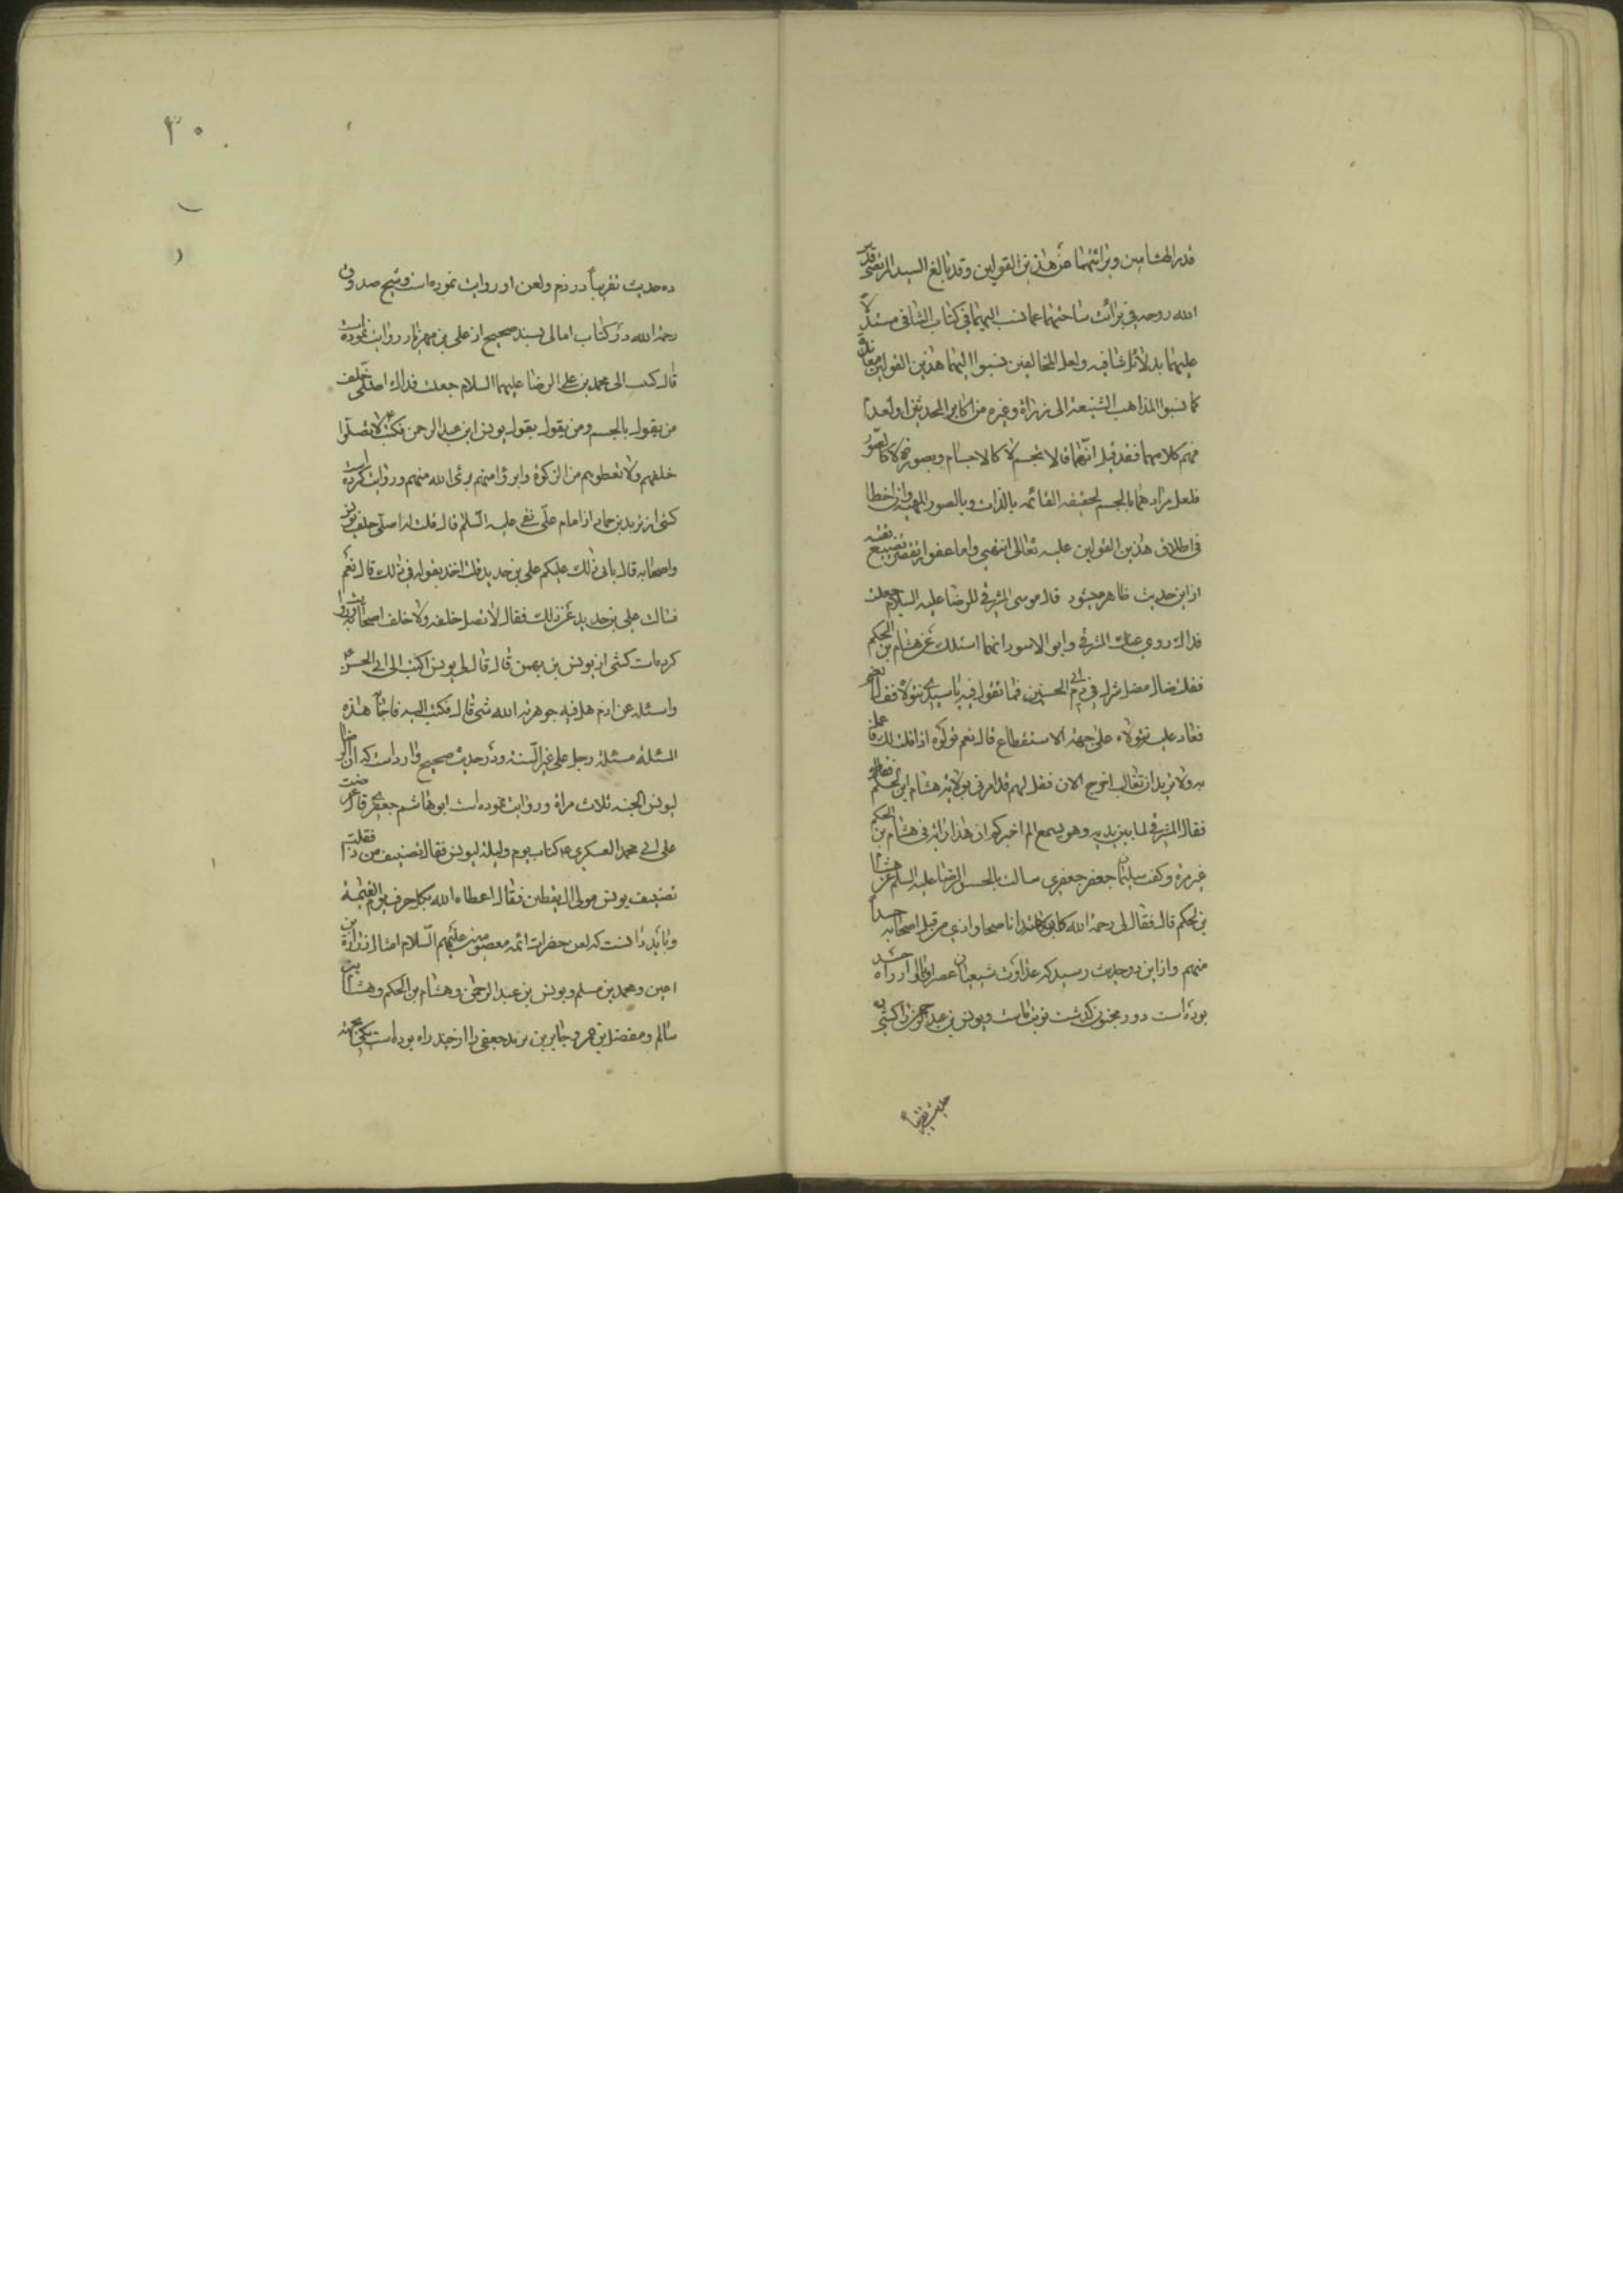 قدر الهشامين وبرائتهما عن هذين القولين وقد بالغ السيد المرتضى قدس
الله روحه في برائت ساحتهما عما نسب اليهما في كتاب الشافي مستدلا
عليهما بدلائل شافيه ولعل المخالفين نسبوا اليهما هذين القولين معاندة
كما نسبوا المذاهب الشنيعة الى زرارة وغيره من اكابر المحدثين او لعدم
فهم كلامهما فقد قيل انهما قالا بجسم لا كالاجسام وبصورة لا كالصور
فلعل مرادهما بالجسم الحقيقه القائمه بالذات وبالصورة المهية وان اخطا
في اطلاق هذين القولين عليه تعالى انتهى واما
از اين حديث ظاهر ميشود قال موسى المشرقي للرضا عليه السلام جعلت
فداك روى عنك المشرقي وابو الاسود انهما اسئلك عن هشام بن الحكم
فقلت ضال مضل شرك في دم ابي الحسن فما تقول فيه يا سيدي نتولاه فقال نعم
فعاد عليه نتولاه على جهة الاستقطاع قال نعم تولوه اذا قلت لك فاعمل
به ولا تريد ان تغالب اخرج الان فقل لهم قد امرني بولاية هشام ابن الحكم
فقال المشرقي لنا بين يديه وهو يسمع الم اخبركم ان هذا رايه في هشام بن الحكم
غير مرة وكفت سليمان جعفر جعفري سالت ابالحسن الرضا عليه السلم عن هشام
بن الحكم قال فقال لي رحمه الله كان عبدا ناصحا واذي من قبل اصحابه حسدا
منهم واز اين دو حديث رسيد كه عداوت شيعيان عصر او باو از راه حسد
بوده است دور مجنون گذشت نوبت ماست ويونس بن عبد الرحمن را كشي
حديث تقريبا
٣٠
ده حديث تقريبا در ذم ولعن او روايت نموده است وشيخ صدوق
رحمه الله در كتاب امالى بسند صحيح از على بن مهزيار روايت نموده است
قال كتب الى محمد بن على الرضا عليهما السلام جعلت فداك اصلى خلف
من يقول بالجسم ومن يقول بقول يونس ابن عبد الرحمن فكتب ع لا تصلوا
خلفهم ولا تعطوهم من الزكوة وابرؤا منهم برئ الله منهم وروايت كرده است
كشى از يزيد بن حماد از امام على نقى عليه السلم قال قلت له اصلى خلف يونس
واصحابه قال يابى ذلك عليكم على بن حديد قلت اخذ بقوله في ذلك قال نعم
فسالت على بن حديد عن ذلك فقال لا تصل خلفه ولا خلف اصحابه وروايت
كرده است كشى از يونس بن بهمن قال قال لي يونس اكتب الى ابى الحسن ع
واسئله عن ادم هل فيه جوهرية الله شئ قال فكتب اليه فاجاب هذه
المسئلة مسئلة رجل على غير السنة ودر حديث صحيح وارد است كه ان الرضا ضمن
ليونس الجنة ثلاث مراة وروايت نموده است ابو هاشم جعفرى قال عرضت
على ابى محمد العسكرى ع كتاب يوم وليلة ليونس فقال تصنيف من ذا فقلت
تصنيف يونس مولى ال يقطين فقال اعطاه الله بكل حرف نورا يوم القيمة
وبايد دانست كه لعن حضرات ائمه معصومين عليهم السلام امثال زرارة بن
اعين ومحمد بن مسلم ويونس بن عبد الرحمن وهشام بن الحكم وهشام بن
سالم ومفضل بن عمر وجابر بن يزيد جعفى را از چند راه بوده است يكى بجهة